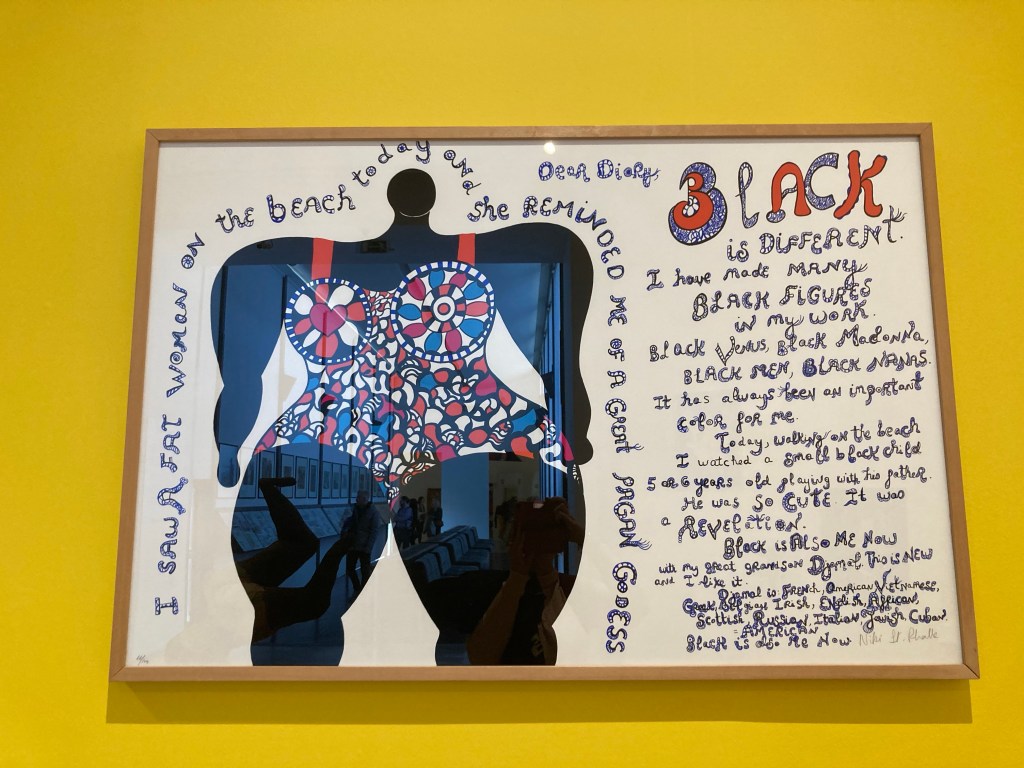 I SAW A FAT WOMAN ON the bEACH today and she REMINDED ME OF A GREAT PAGAN GODESS
Dear Diary,
BlACK
is DiFFERENT.
I have made MANY
BLACK FIGURES
in my work.
BLACK VENUS, BLACK MADONNA,
BLACK MEN, BLACK NANAS.
It has always been an important
color for me.
Today, walking on the beach
I watched a small black child
5 OR 6 years old playing with his father.
He was SO CUTE. It was
a REVELATION.
Black is Also Me Now
with my great grandson Djamal. This is NEW
and I like it.
Djamal is FRENCH, American, VIETNAMESE,
Greek, Belgian, Irish, ENglish, African,
Scottish, Russian, Italian, Jewish, Cuban.
= AMERICAN
Black is also Me Now
Niki St. Phalle